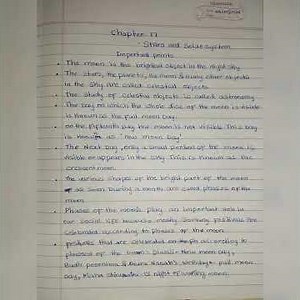 Chapter 17
Stars and Solar System
Important points
The moon is the brightest object in the night sky.
The stars, the planets, the moon & many other objects
in the sky are called celestial objects.
The study of celestial objects is called astronomy.
The Day on which the whole disc of the moon is visible
is known as the full moon day.
on the fifteenth day the moon is not visible. This day
is known as "new moon day".
The Next Day, only a small portion of the moon is
visible or appears in the sky. This is known as the
crescent moon.
the various shapes of the bright part of the moon
as seen during a month are called phases of the
moon.
Phases of the moon play an important role in
our social life. Almost festivals are
celebrated according to phases of the moon.
festivals that are celebrated according to
phases of the moon: Diwali: New moon day,
Budh poornima & Guru Nanak's birthday: full moon
day, Maha Shivratri: 13 night of waning moon.